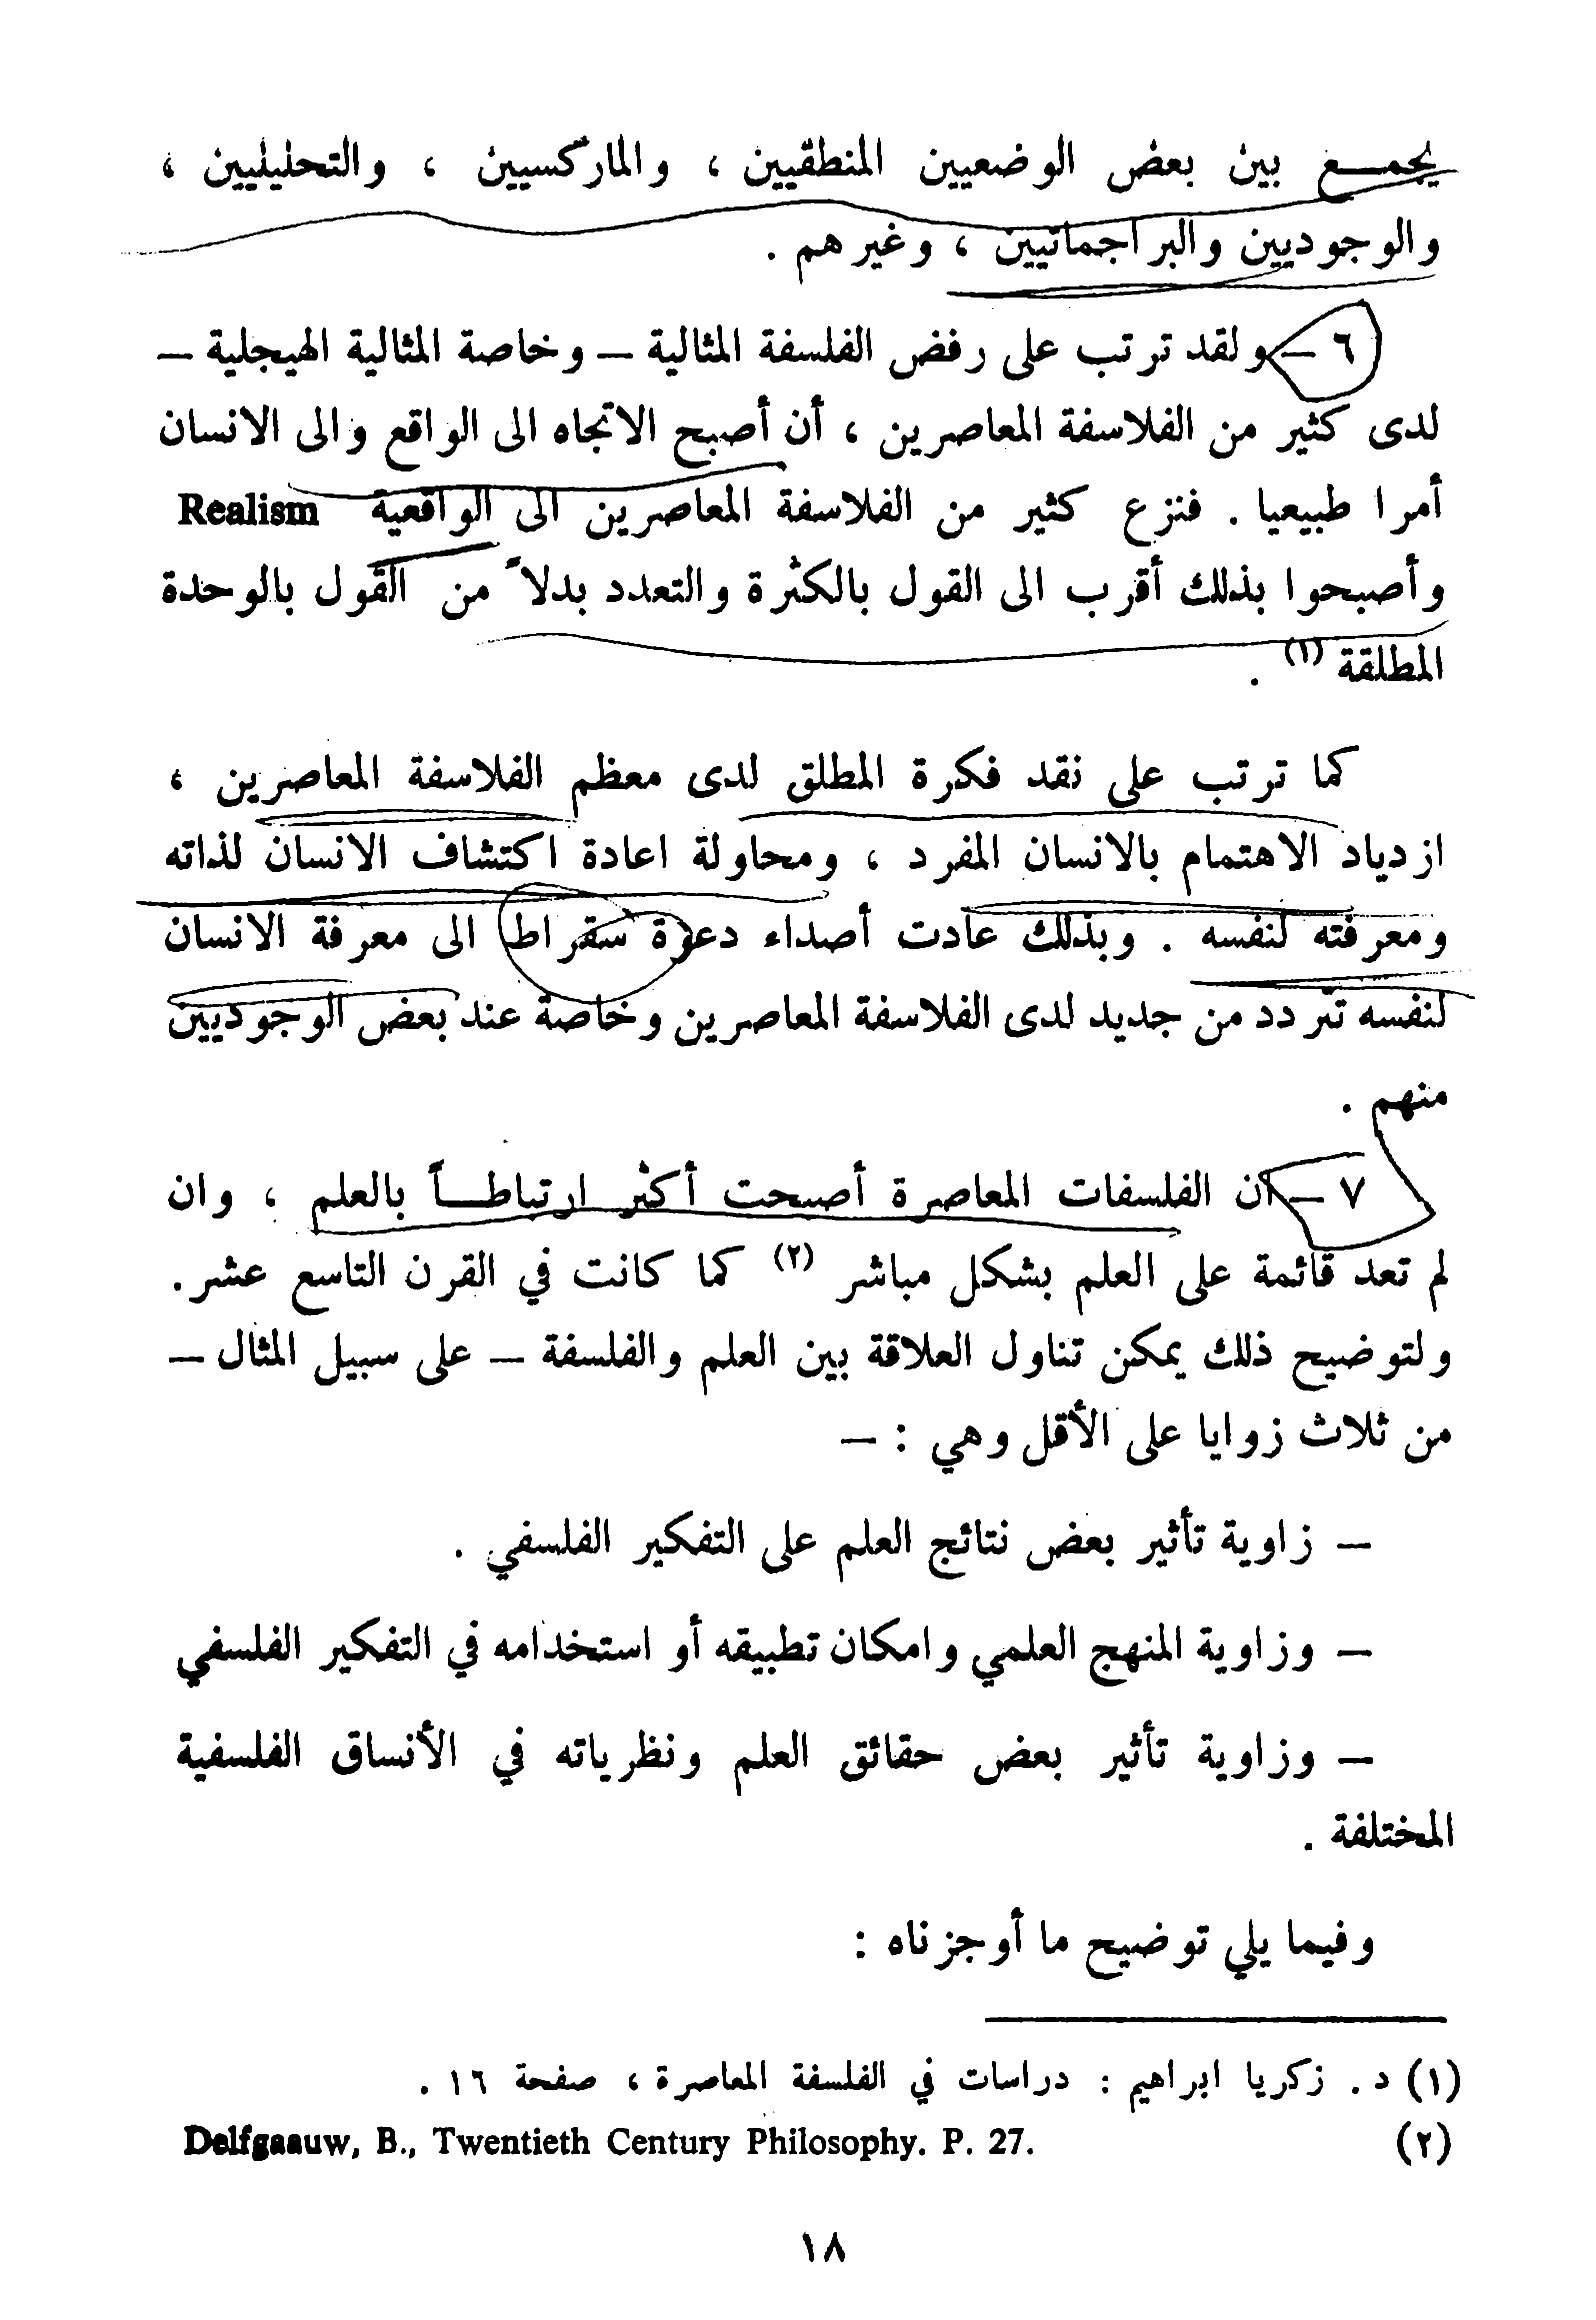 يجمــع بين بعض الوضعيين المنطقيين ، والماركسيين ، والتحليليين ،
والوجوديين والبراجماتيين ، وغيرهم .
٦ – ولقد ترتب على رفض الفلسفة المثالية – وخاصة المثالية الهيجلية –
لدى كثير من الفلاسفة المعاصرين ، أن أصبح الاتجاه الى الواقع والى الانسان
أمرا طبيعيا . فنزع كثير من الفلاسفة المعاصرين الى الواقعية Realism
وأصبحوا بذلك أقرب الى القول بالكثرة والتعدد بدلاً من القول بالوحدة
المطلقة (١) .
كما ترتب على نقد فكرة المطلق لدى معظم الفلاسفة المعاصرين ،
ازدياد الاهتمام بالانسان المفرد ، ومحاولة اعادة اكتشاف الانسان لذاته
ومعرفته لنفسه . وبذلك عادت أصداء دعوة سقراط الى معرفة الانسان
لنفسه تتردد من جديد لدى الفلاسفة المعاصرين وخاصة عند بعض الوجوديين
منهم .
٧ – ان الفلسفات المعاصرة أصبحت أكثر ارتباطــاً بالعلم ، وان
لم تعد قائمة على العلم بشكل مباشر (٢) كما كانت في القرن التاسع عشر .
ولتوضيح ذلك يمكن تناول العلاقة بين العلم والفلسفة – على سبيل المثال –
من ثلاث زوايا على الأقل وهي : –
– زاوية تأثير بعض نتائج العلم على التفكير الفلسفي .
– وزاوية المنهج العلمي وامكان تطبيقه أو استخدامه في التفكير الفلسفي
– وزاوية تأثير بعض حقائق العلم ونظرياته في الأنساق الفلسفية
المختلفة .
وفيما يلي توضيح ما أوجزناه :
(١) د . زكريا ابراهيم : دراسات في الفلسفة المعاصرة ، صفحة ١٦ .
(٢) Delfgaauw, B., Twentieth Century Philosophy. P. 27.
١٨